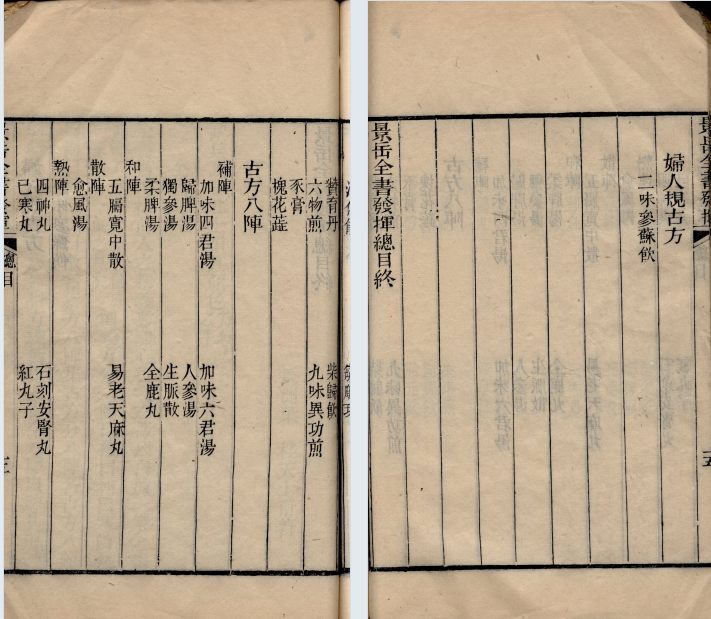 婦人規古方
二味參蘇飲
景岳全書發揮總目終
景岳全書發揮
贊育丹
柴歸飲
六物煎
九味異功煎
豕膏
槐花蕋
古方八陣
補陣
加味四君湯
加味六君湯
歸脾湯
人參湯
獨參湯
生脈散
柔脾湯
全鹿丸
和陣
五膈寬中散
易老天麻丸
散陣
愈風湯
熱陣
四神丸
石刻安腎丸
已寒丸
紅丸子
總目